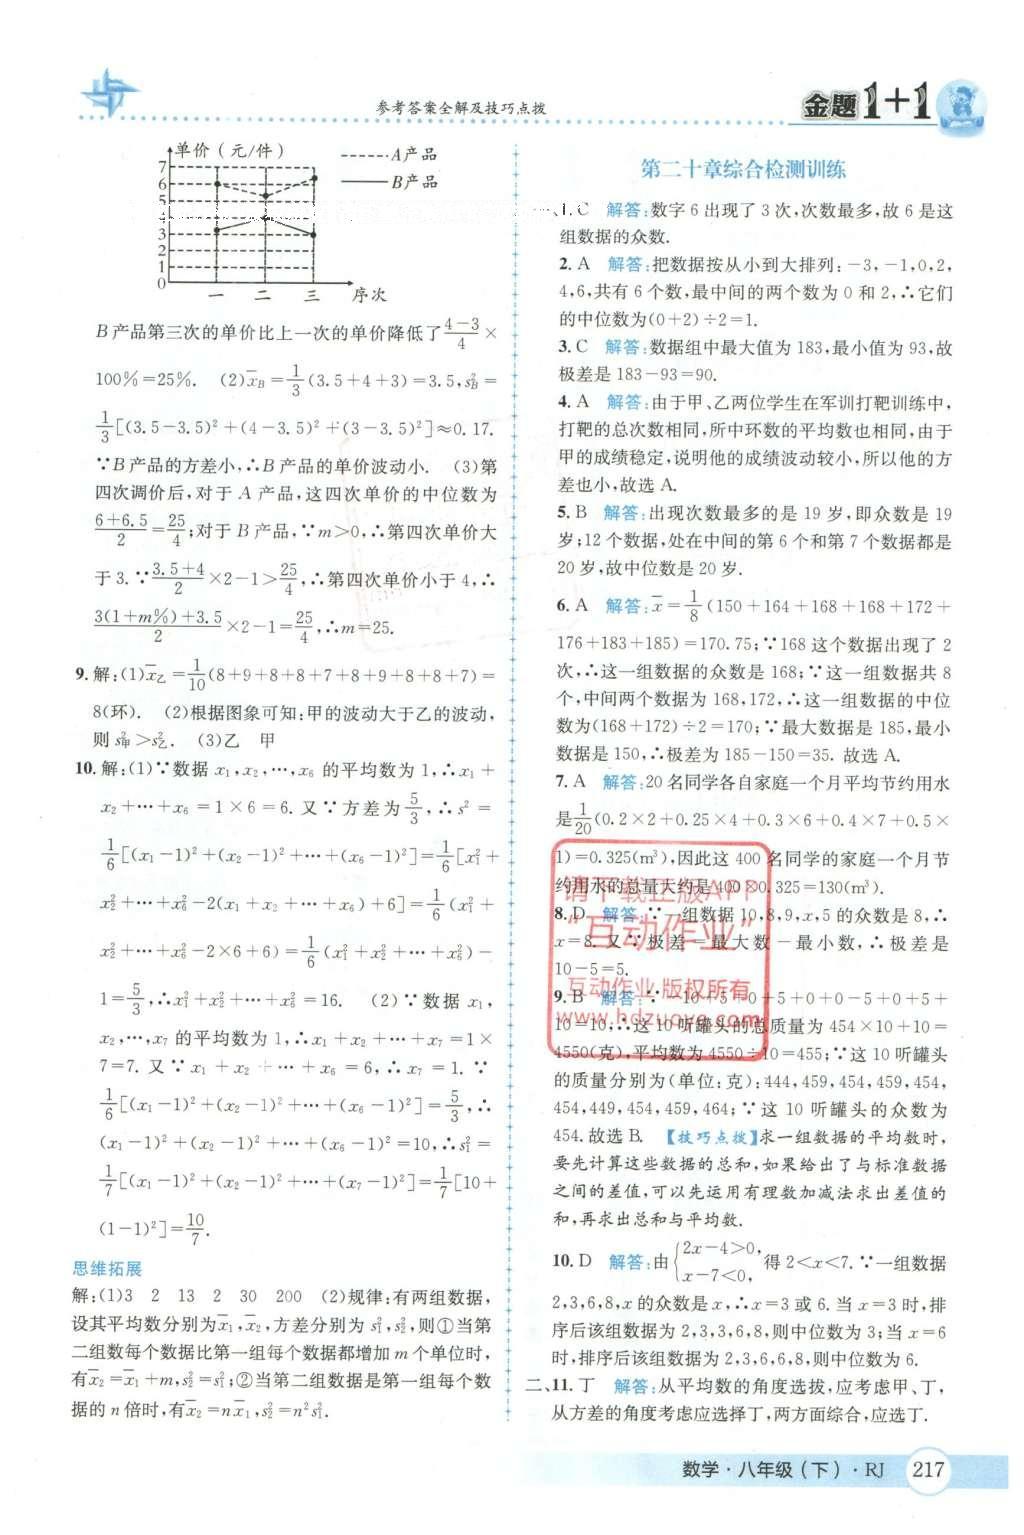 参考答案全解及技巧点拨
金题1+1
单价(元/件)
A产品
B产品
7
6
5
4
3
2
1
0
一 二 三 序次
B产品第三次的单价比上一次的单价降低了\frac{4-3}{4}×
100%=25%. (2)\bar{x}_B=\frac{1}{3}(3.5+4+3)=3.5,s²_B=
\frac{1}{3}[(3.5-3.5)²+(4-3.5)²+(3-3.5)²]≈0.17.
∵B产品的方差小,∴B产品的单价波动小. (3)第
四次调价后,对于A产品,这四次单价的中位数为
\frac{6+6.5}{2}=\frac{25}{4};对于B产品,∵m>0,∴第四次单价大
于3.∵\frac{3.5+4}{2}×2-1>\frac{25}{4},∴第四次单价小于4,∴
\frac{3(1+m%)+3.5}{2}×2-1=\frac{25}{4},∴m=25.
9.解:(1)\bar{x}_乙=\frac{1}{10}(8+9+8+8+7+8+9+8+8+7)=
8(环). (2)根据图象可知:甲的波动大于乙的波动,
则s²_甲>s²_乙. (3)乙 甲
10.解:(1)∵数据x₁,x₂,…,x₆的平均数为1,∴x₁+
x₂+…+x₆=1×6=6.又∵方差为\frac{5}{3},∴s²=
\frac{1}{6}[(x₁-1)²+(x₂-1)²+…+(x₆-1)²]=\frac{1}{6}[x₁²+
x₂²+…+x₆²-2(x₁+x₂+…+x₆)+6]=\frac{1}{6}(x₁²+
x₂²+…+x₆²-2×6+6)=\frac{1}{6}(x₁²+x₂²+…+x₆²)-
1=\frac{5}{3},∴x₁²+x₂²+…+x₆²=16. (2)∵数据x₁,
x₂,…,x₇的平均数为1,∴x₁+x₂+…+x₇=1×
7=7.又∵x₁+x₂+…+x₆=6,∴x₇=1.∵
\frac{1}{6}[(x₁-1)²+(x₂-1)²+…+(x₆-1)²]=\frac{5}{3},∴
(x₁-1)²+(x₂-1)²+…+(x₆-1)²=10,∴s₁²=
\frac{1}{7}[(x₁-1)²+(x₂-1)²+…+(x₇-1)²]=\frac{1}{7}[10+
(1-1)²]=\frac{10}{7}.
思维拓展
解:(1)3 2 13 2 30 200 (2)规律:有两组数据,
设其平均数分别为\bar{x}₁,\bar{x}₂,方差分别为s₁²,s₂²,则①当第
二组数每个数据比第一组每个数据都增加m个单位时,
有\bar{x}₂=\bar{x}₁+m,s₂²=s₁²;②当第二组数据是第一组每个数
据的n倍时,有\bar{x}₂=n\bar{x}₁,s₂²=n²s₁².
第二十章综合检测训练
、1.C 解答:数字6出现了3次,次数最多,故6是这
组数据的众数.
2.A 解答:把数据按从小到大排列:-3,-1,0,2,
4,6,共有6个数,最中间的两个数为0和2,∴它们
的中位数为(0+2)÷2=1.
3.C 解答:数据组中最大值为183,最小值为93,故
极差是183-93=90.
4.A 解答:由于甲、乙两位学生在军训打靶训练中,
打靶的总次数相同,所中环数的平均数也相同,由于
甲的成绩稳定,说明他的成绩波动较小,所以他的方
差也小,故选A.
5.B 解答:出现次数最多的是19岁,即众数是19
岁;12个数据,处在中间的第6个和第7个数据都是
20岁,故中位数是20岁.
6.A 解答:\bar{x}=\frac{1}{8}(150+164+168+168+172+
176+183+185)=170.75;∵168这个数据出现了2
次,∴这一组数据的众数是168;∵这一组数据共8
个,中间两个数据为168,172,∴这一组数据的中位
数为(168+172)÷2=170;∵最大数据是185,最小
数据是150,∴极差为185-150=35. 故选A.
7.A 解答:20名同学各自家庭一个月平均节约用水
是\frac{1}{20}(0.2×2+0.25×4+0.3×6+0.4×7+0.5×
1)=0.325(m³),因此这400名同学的家庭一个月节
约用水的总量大约是400×0.325=130(m³).
8.D 解答:∵一组数据10,8,9,x,5的众数是8,∴
x=8.又∵极差=最大数-最小数,∴极差是
10-5=5.
9.B 解答:∵-10+5+0+5+0+0-5+0+5+
10=10,∴这10听罐头的总质量为454×10+10=
4550(克),平均数为4550÷10=455;∵这10听罐头
的质量分别为(单位:克):444,459,454,459,454,
454,449,454,459,464;∵这10听罐头的众数为
454.故选B. 【技巧点拨】求一组数据的平均数时,
要先计算这些数据的总和,如果给出了与标准数据
之间的差值,可以先运用有理数加减法求出差值的
和,再求出总和与平均数.
10.D 解答:由{2x-4>0,x-7<0,得2<x<7.∵一组数据
2,3,6,8,x的众数是x,∴x=3或6.当x=3时,排
序后该组数据为2,3,3,6,8,则中位数为3;当x=6
时,排序后该组数据为2,3,6,6,8,则中位数为6.
二、11.丁 解答:从平均数的角度选拔,应考虑甲、丁,
从方差的角度考虑应选择丁,两方面综合,应选丁.
请下载正版APP
“互动作业”
互动作业 版权所有
www.hdzuoye.com
数学·八年级(下)·RJ 217